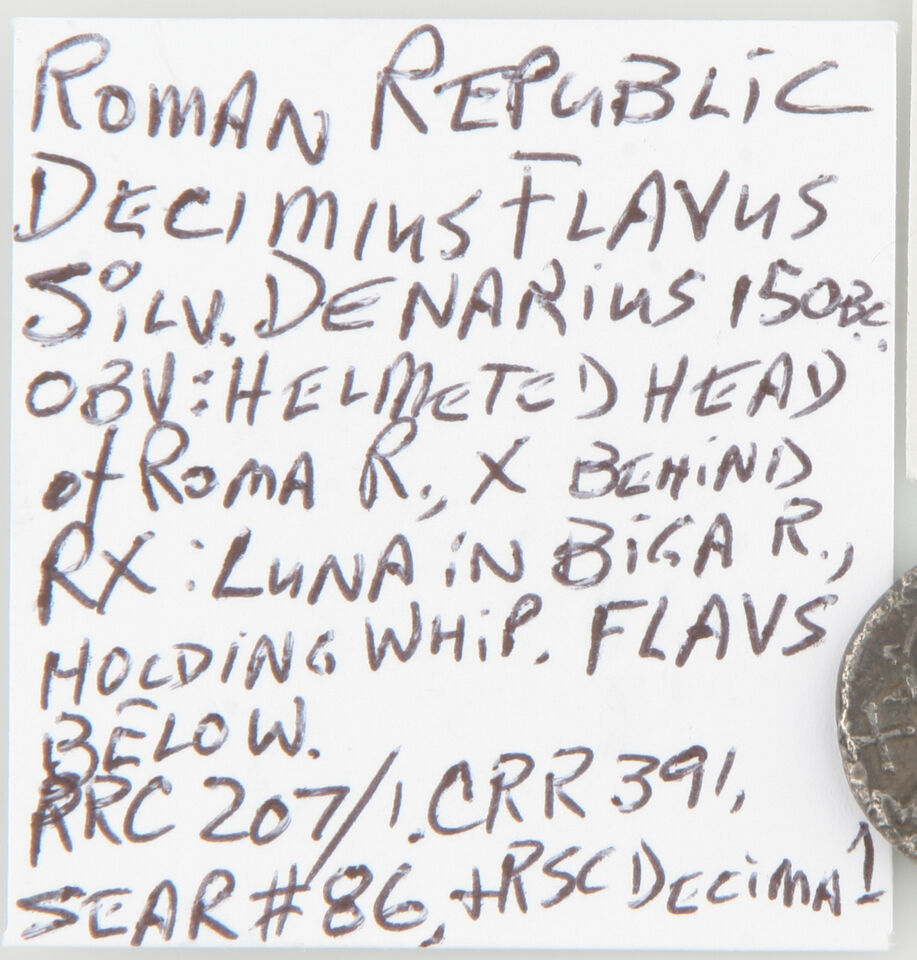 ROMAN REPUBLIC
DECIMIUS FLAVUS
SILV. DENARIUS 150BC.
OBV: HELMETED HEAD
of ROMA R., X BEHIND
RX: LUNA IN BIGA R.,
HOLDING WHIP. FLAVS
BELOW.
RRC 207/1. CRR 391,
SEAR #86, +RSC DECIMA 1